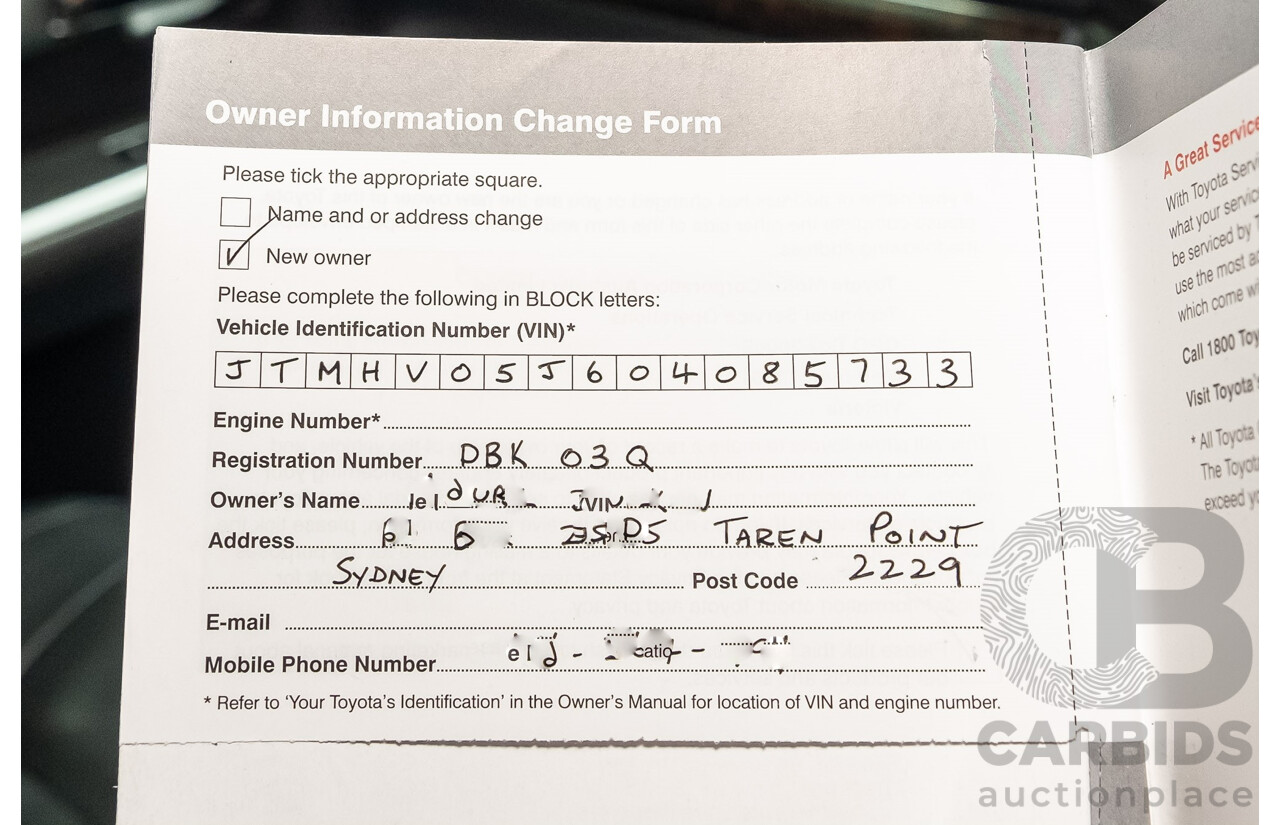 Owner Information Change Form
Please tick the appropriate square.
Name and or address change
New owner
Please complete the following in BLOCK letters:
Vehicle Identification Number (VIN)*
JTMHV05J604085733
Engine Number*
Registration Number DBK 03Q
Owner's Name
Address TAREN POINT
SYDNEY Post Code 2229
E-mail
Mobile Phone Number
* Refer to 'Your Toyota's Identification' in the Owner's Manual for location of VIN and engine number.
A Great Service
With Toyota
what your
be serviced by
use the most
which come
Call 1800
Visit Toyota's
* All Toyota
The
exceed
CARBIDS
auctionplace